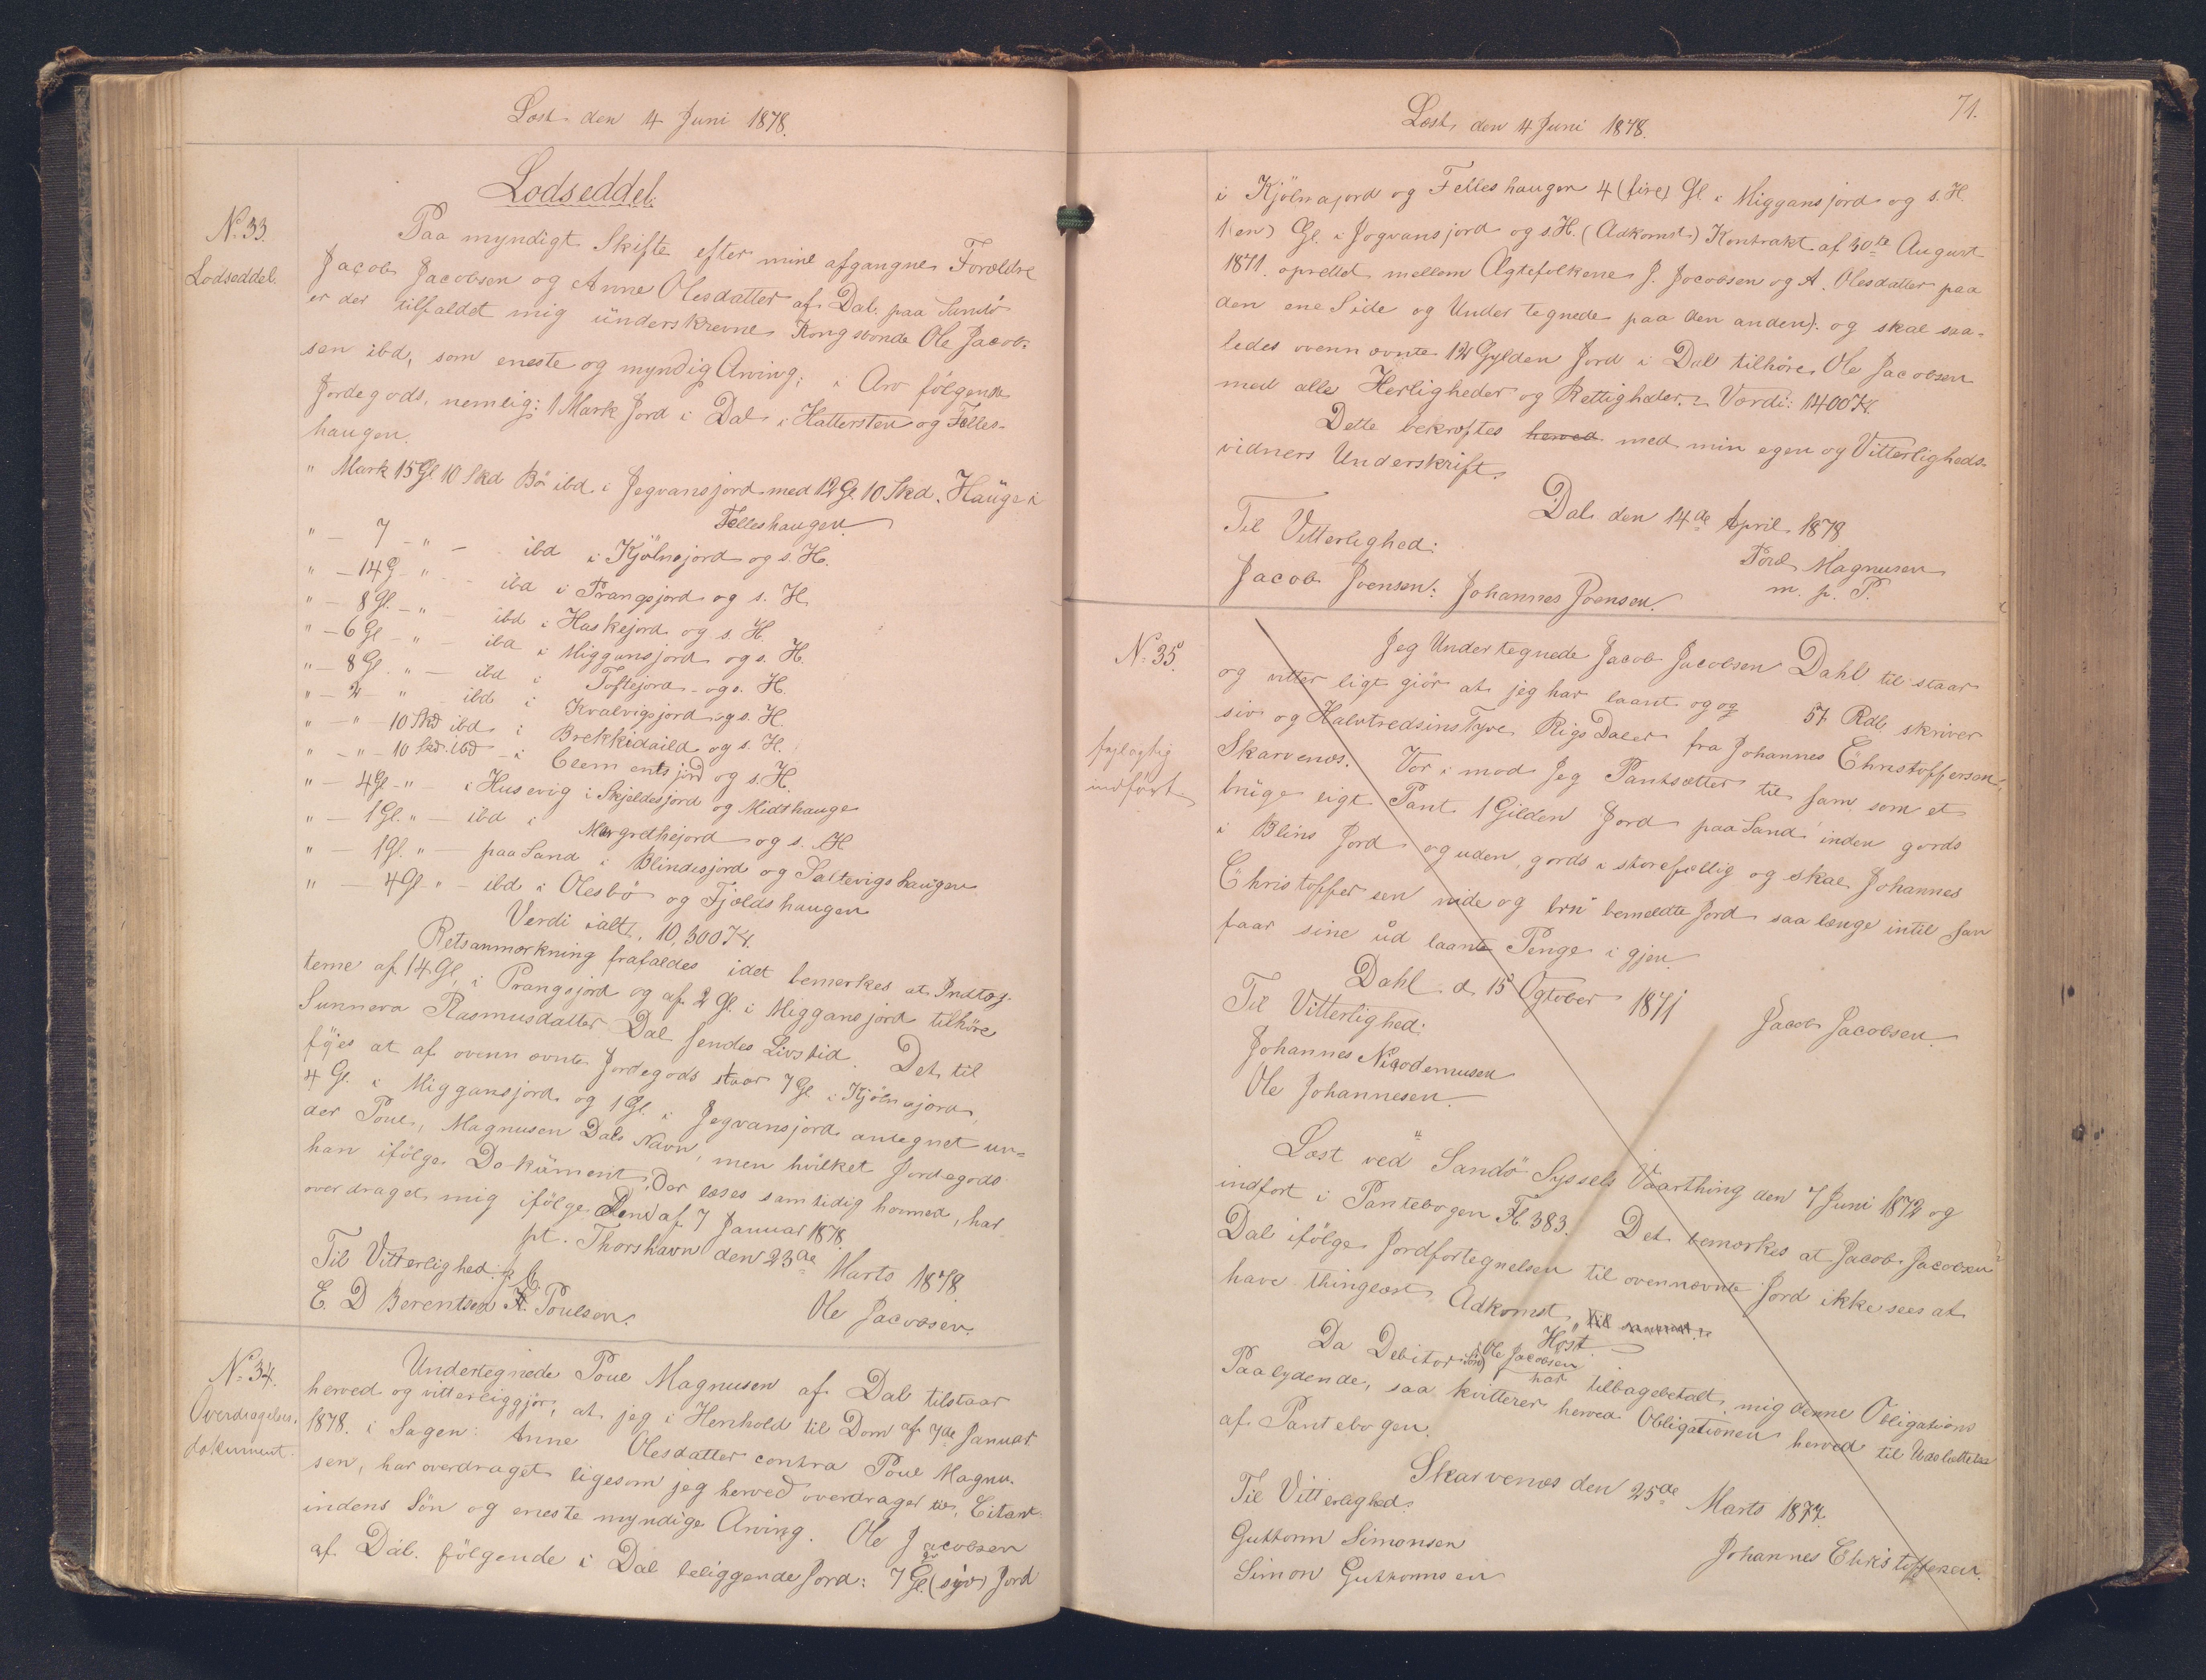 Læst den 4 Juni 1878.
Lodseddel.
N. 33.
Lodseddel.
Paa myndigt Skifte efter mine afgangne Forældre
Jacob Jacobsen og Anne Olesdatter af Dal paa Sandö
er der tilfaldet mig ünderskrevne Kongsbonde Ole Jacob-
sen ibd, som eneste og myndig Arving, i Arv følgende
Jordegods, nemlig: 1 Mark Jord i Dal i Hattersten og Felles-
haugen.
" Mark 15 Gl 10 Skd Bö ibd i Jegvansjord med 12 Gl. 10 Skd. Hauge i
Felleshaugen
" — 7 — " — ibd i Kjölnejord og s. H.
" — 14 G — " — ibd i Prangsjord og s. H.
" — 8 Gl. — " — ibd i Huskejord og s. H.
" — 6 Gl — " — ibd i Miggansjord og s. H.
" — 8 Gl. " — ibd i Toftejord og s. H.
" — 2 — " ibd i Kvalvigsjord og s. H.
" — " — 10 Skd ibd i Brekkidaild og s. H.
" — " — 10 Skd. ibd i Clementsjord og s. H.
" — 4 Gl — " — i Husevig i Skjeldesjord og Midthauge
" — 1 Gl. " — ibd i Margrethejord og s. H
" — 1 Gl. " — paa Sand i Blindisjord og Saltevigshaugen
" — 4 Gl. " — ibd i Olesbö og Fjeldshaugen
Verdi ialt, 10,300 Kr.
Retsanmærkning frafaldes idet bemerkes at Indtæg-
terne af 14 Gl, i Prangsjord og af 2 Gl. i Miggansjord tilhöre
Sunneva Rasmusdatter Dal hendes Livstid. Det til
föjes at af ovennævnte Jordegods staar 7 Gl. i Kjölnejord,
4 Gl. i Miggansjord og 1 Gl. i Jegvansjord antegnet un-
der Poul, Magnusen Dals Navn, men hvilket Jordegods
han ifölge Dokument, der læses samtidig hermed, har
overdraget mig ifölge Dom af 7 Januar 1878.
pt. Thorshavn den 23de Marts 1878
Til Vitterlighed:
E. D Berentsen Poulson.
Ole Jacobsen.
N. 34.
Overdragelses-
dokument.
Undertegnede Poul Magnusen af Dal tilstaar
herved og vitterliggjör, at jeg i Henhold til Dom af 7de Januar
1878. i Sagen: Anne Olesdatter contra Poul Magnu-
sen, har overdraget ligesom jeg herved overdrager til, Citant-
indens Sön og eneste myndige Arving. Ole Jacobsen
af Dal. fölgende i Dal beliggende Jord: 7 Gl. (syv) Jord
Læst den 4 Juni 1878.
71.
i Kjölnajord og Felleshaugen 4 (fire) Gl. i Miggansjord og s. H.
1 (en) Gl. i Jogvansjord og s. H. (Adkomst:) Kontrakt af 30te August
1871. oprettet mellem Ægtefolkene J. Jacobsen og A. Olesdatter paa
den ene Side og Undertegnede paa den anden). og skal saa-
ledes ovennævnte 12 Gylden Jord i Dal tilhöre Ole Jacobsen
med alle Herligheder og Rettigheder. Værdi: 1400 Kr.
Dette bekræftes herved med min egen og Vitterligheds-
vidners Underskrift.
Dal den 14de April 1878
Til Vitterlighed:
Poul Magnusen
m. p. P.
Jacob Joensen: Johannes Joensen.
N. 35.
fejlagtig
indfört
Jeg Undertegnede Jacob Jacobsen Dahl til staar
og vitter ligt giör at jeg har laant og og 57 Rdl. skriver
siv og Halvtredsinstyve Rigs Daler fra Johannes Christoffersen,
Skarvenæs. Vor i mod Jeg Pantsætter til ham som et
brüge ligt Pant 1 Gilden Jord paa Sand inden gords
i Blins Jord og uden gords i storefællig og skal Johannes
Christoffersen nide og brü bemeldte Jord saa længe intil han
faar sine üd laante Penge i gjen.
Dahl d 15 Ogtober 1871
Til Vitterlighed:
Jacob Jacobsen.
Johannes Nicodemusen
Ole Johannesen.
Læst ved Sandö Syssels Vaarthing den 7 Juni 1872 og
indført i Pantebogen Fl. 383. Det bemærkes at Jacob Jacobsen
Dal ifölge Jordfortegnelsen til ovennævnte Jord ikke sees at
have thinglæst Adkomst,
Høst.
Da Debitor Sön Ole Jacobsen har tilbagebetalt mig denne Obligations
Paalydende, saa kvitterer herved Obligationen herved til Udslettelse
af Pantebogen.
Skarvenæs den 25de Marts 1877.
Til Vitterlighed:
Guttorm Simonsen
Simon Guttormsen
Johannes Christoffersen.